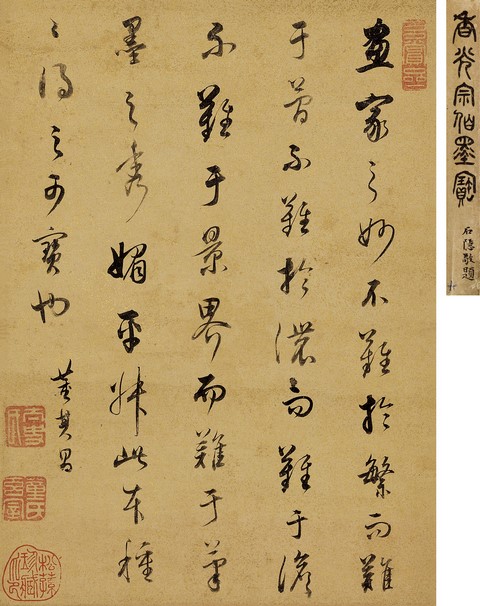 畫家之妙不難於繁而難
于簡不難於濃而難于澹
不難于景界而難于筆
墨之秀媚平叔此本種
〻得之可寶也
董其昌
香光宗伯墨寶
石隱敬題